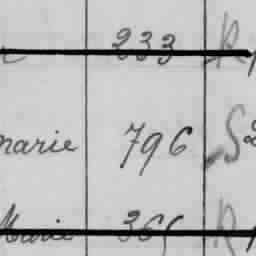 233 R
marie 796 S
Marie 365 R